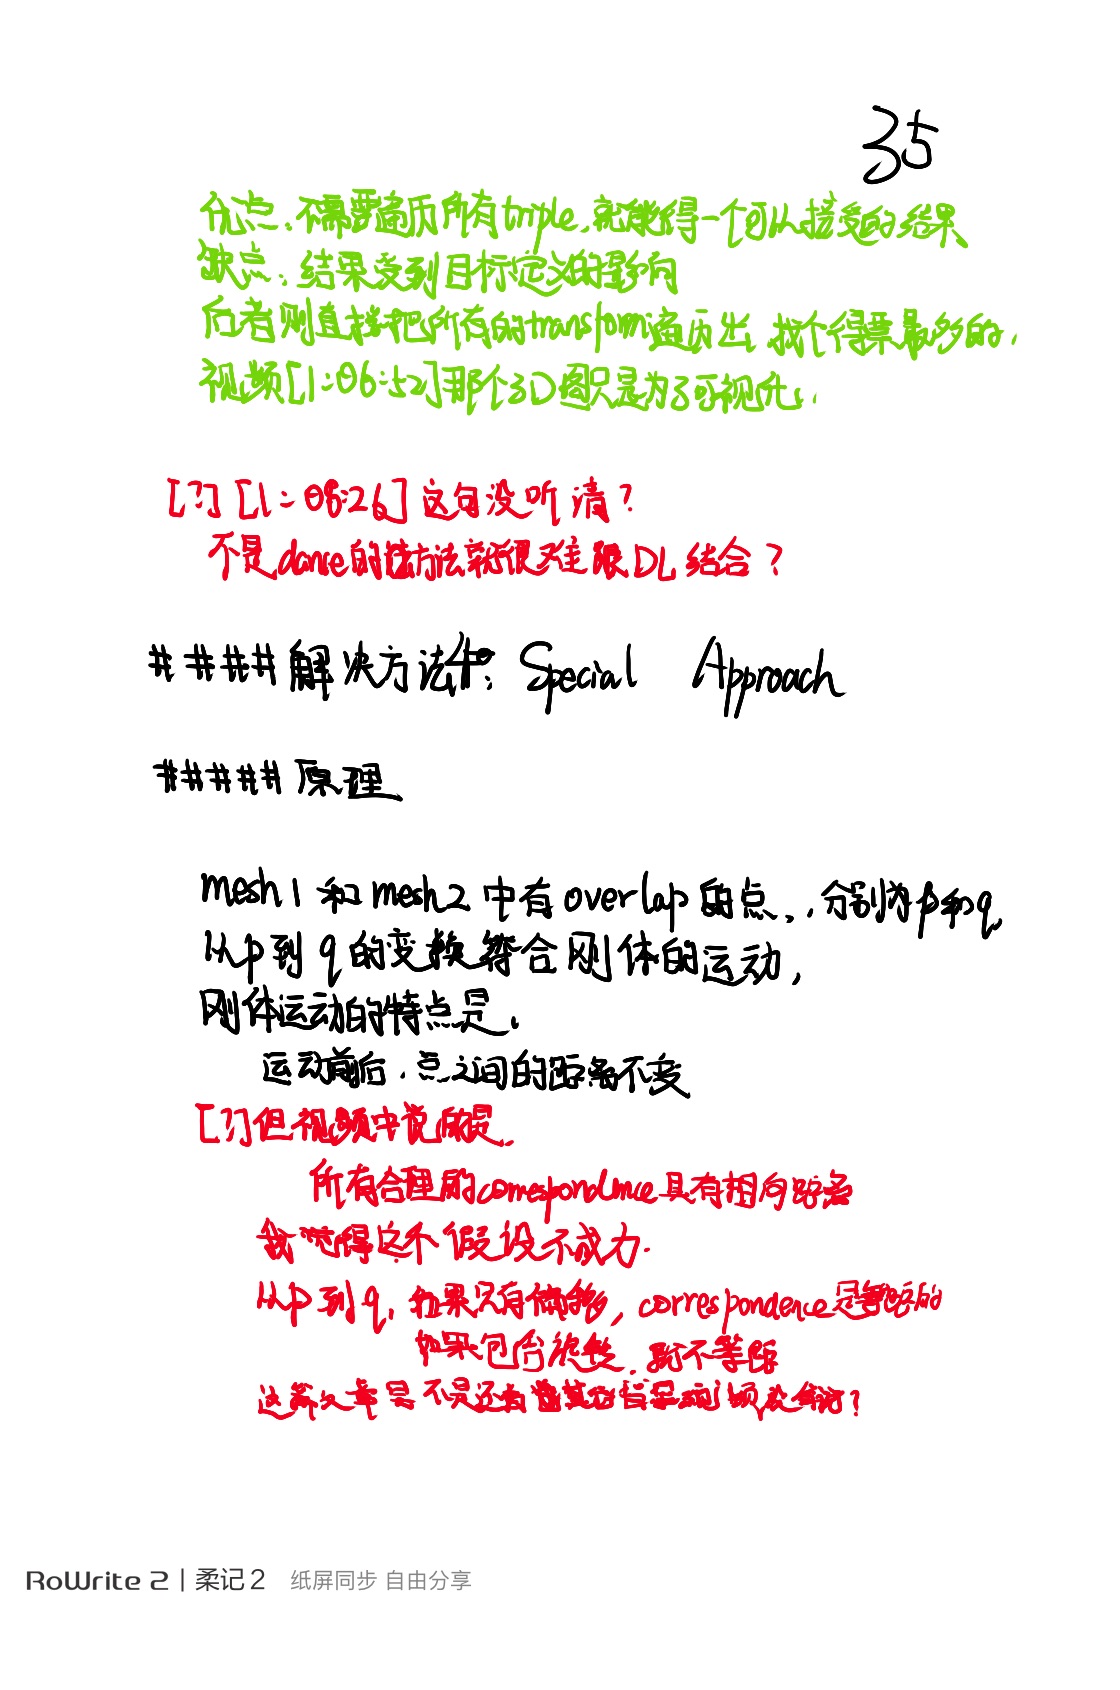 35
优点:不需要遍历所有triple,就能得一个可以接受的结果
缺点:结果受到目标定义的影响
后者则直接把所有的transform遍历出,找个得票最多的.
视频[1:06:52]那个3D图只是为了可视化.
[?][1:08:26]这句没听清?
不是dance的方法就很难跟DL结合?
####解决方法4: Special Approach
#####原理
mesh1和mesh2中有overlap的点,分别为p和q,
从p到q的变换符合刚体的运动,
刚体运动的特点是:
运动前后,点之间的距离不变
[?]但视频中说的是:
所有合理的correspondence具有相同距离
我觉得这个假设不成力.
从p到q,如果只有偏移,correspondence是等距的
如果包含旋转,就不等距
这篇文章是不是还有其它